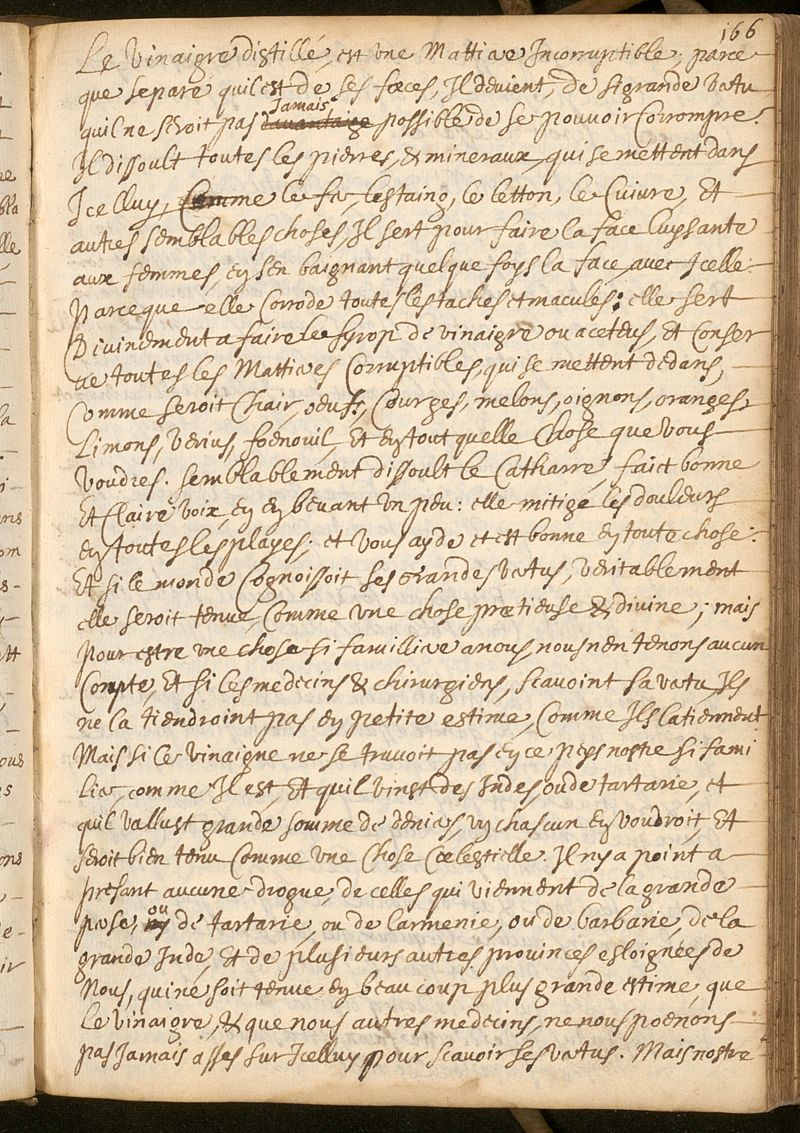 166
Le vinaigre distillé, est une Mattiere Incorruptible, parce
que separé quil est de ses fœces, Il devient, de si grande vertu
Jamais
quil ne seroit pas davantaige possible de se pouvoir Corrompre.
Il dissoult toutes les pierres, & mineraux, qui se mettent dans
Icelluy, Comme le fer, lestaing, le letton, le Cuivre, Et
autres semblables choses, Il sert pour faire la face luysante
aux femmes, en sen baignant quelque foys la face, avec Icelle.
Parceque elle Corrode toutes les taches et macules; elle sert
Divinement a faire le syrop de vinaigre ou aceteus, et Conser
ve toutes les Mattieres Corruptibles, qui se mettent dedans,
Comme seroit Chair, oeufs, Courges, melons, oignons, oranges,
Limons, verius, foenouil, Et en tout quelle Chose que vous
voudres. Semblablement dissoult le Catharre, faict bonne
Et Claire voix, en en beuvant un peu: elle mitige les douleurs
en toutes les playes; et vous ayde et est bonne en toute chose.
Et si le monde Cognoissoit ses grandes vertus, veritablement
elle seroit tenue, Comme une chose pretieuse & divine; mais
pour estre une chose si familliere a nous, nous nen tenons aucun
Conpte, Et si les medecins & chirurgiens, scavoint sa vertu, Ils
ne la tiendroint pas en petite estime, Comme Ils la tiennent
Mais si le vinaigne ne se truvoit pas en ce peys nostre si fami
lier, comme Il est, Et quil vinst des Indes, ou de tartarie, et
quil vallust grande somme de deniers, un chascun en voudroit, Et
seroit bien tenu Comme une Chose Cœlestielle. Il ny a point a
presant aucune drogue, de celles qui viennent de la grande
ou
perse, de tartarie, ou de larmenie, ou de barbarie, de la
grande Inde, Et de plusieurs autres provinces esloignées de
Nous, qui ne soit tenue en beaucoup plus grande estime, que
Le vinaigre, & que nous autres medecins, ne nous prenons
pas Jamais asses sur Icelluy pour scavoir ses vertus. Mais nostre